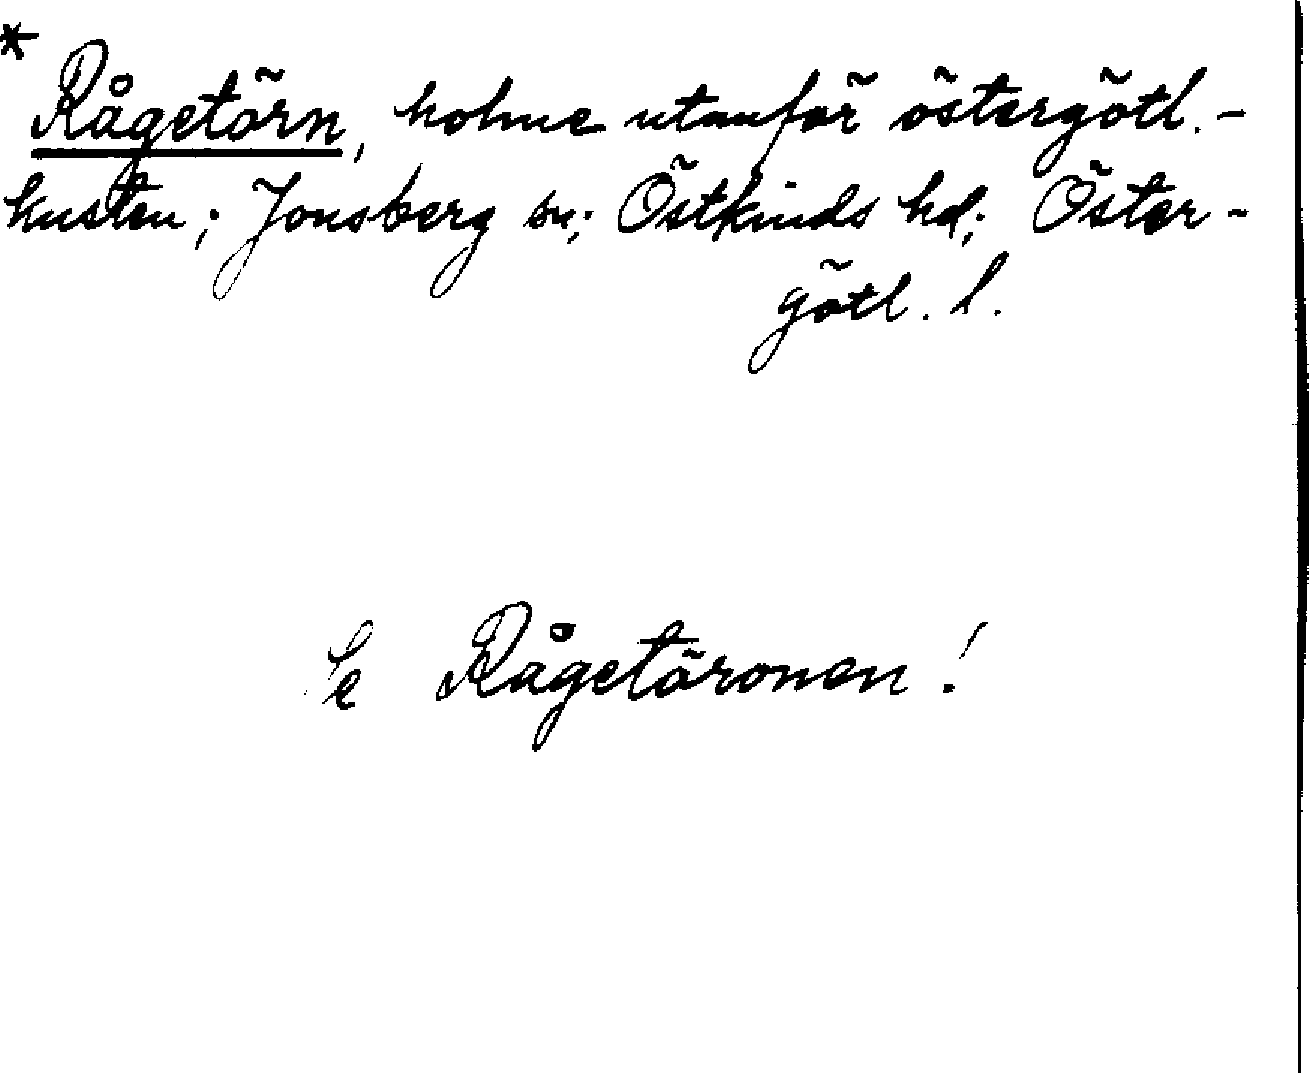 * Rågetörn, holme utanför östergötl.-
kusten; Jonsberg sn; Östkinds hd; Öster-
götl. l.
Se Rågetöronen!